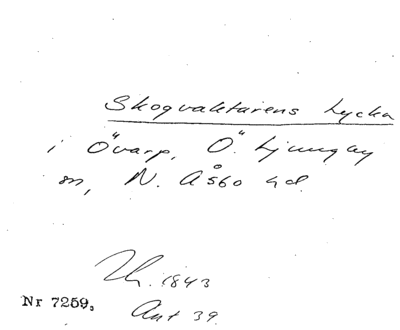 Skogvaktarens Lycka
i Övarp, Ö. Ljungby
sn, N. Åsbo hd.
Lh. 1843
Nr 7259,
Ant 39